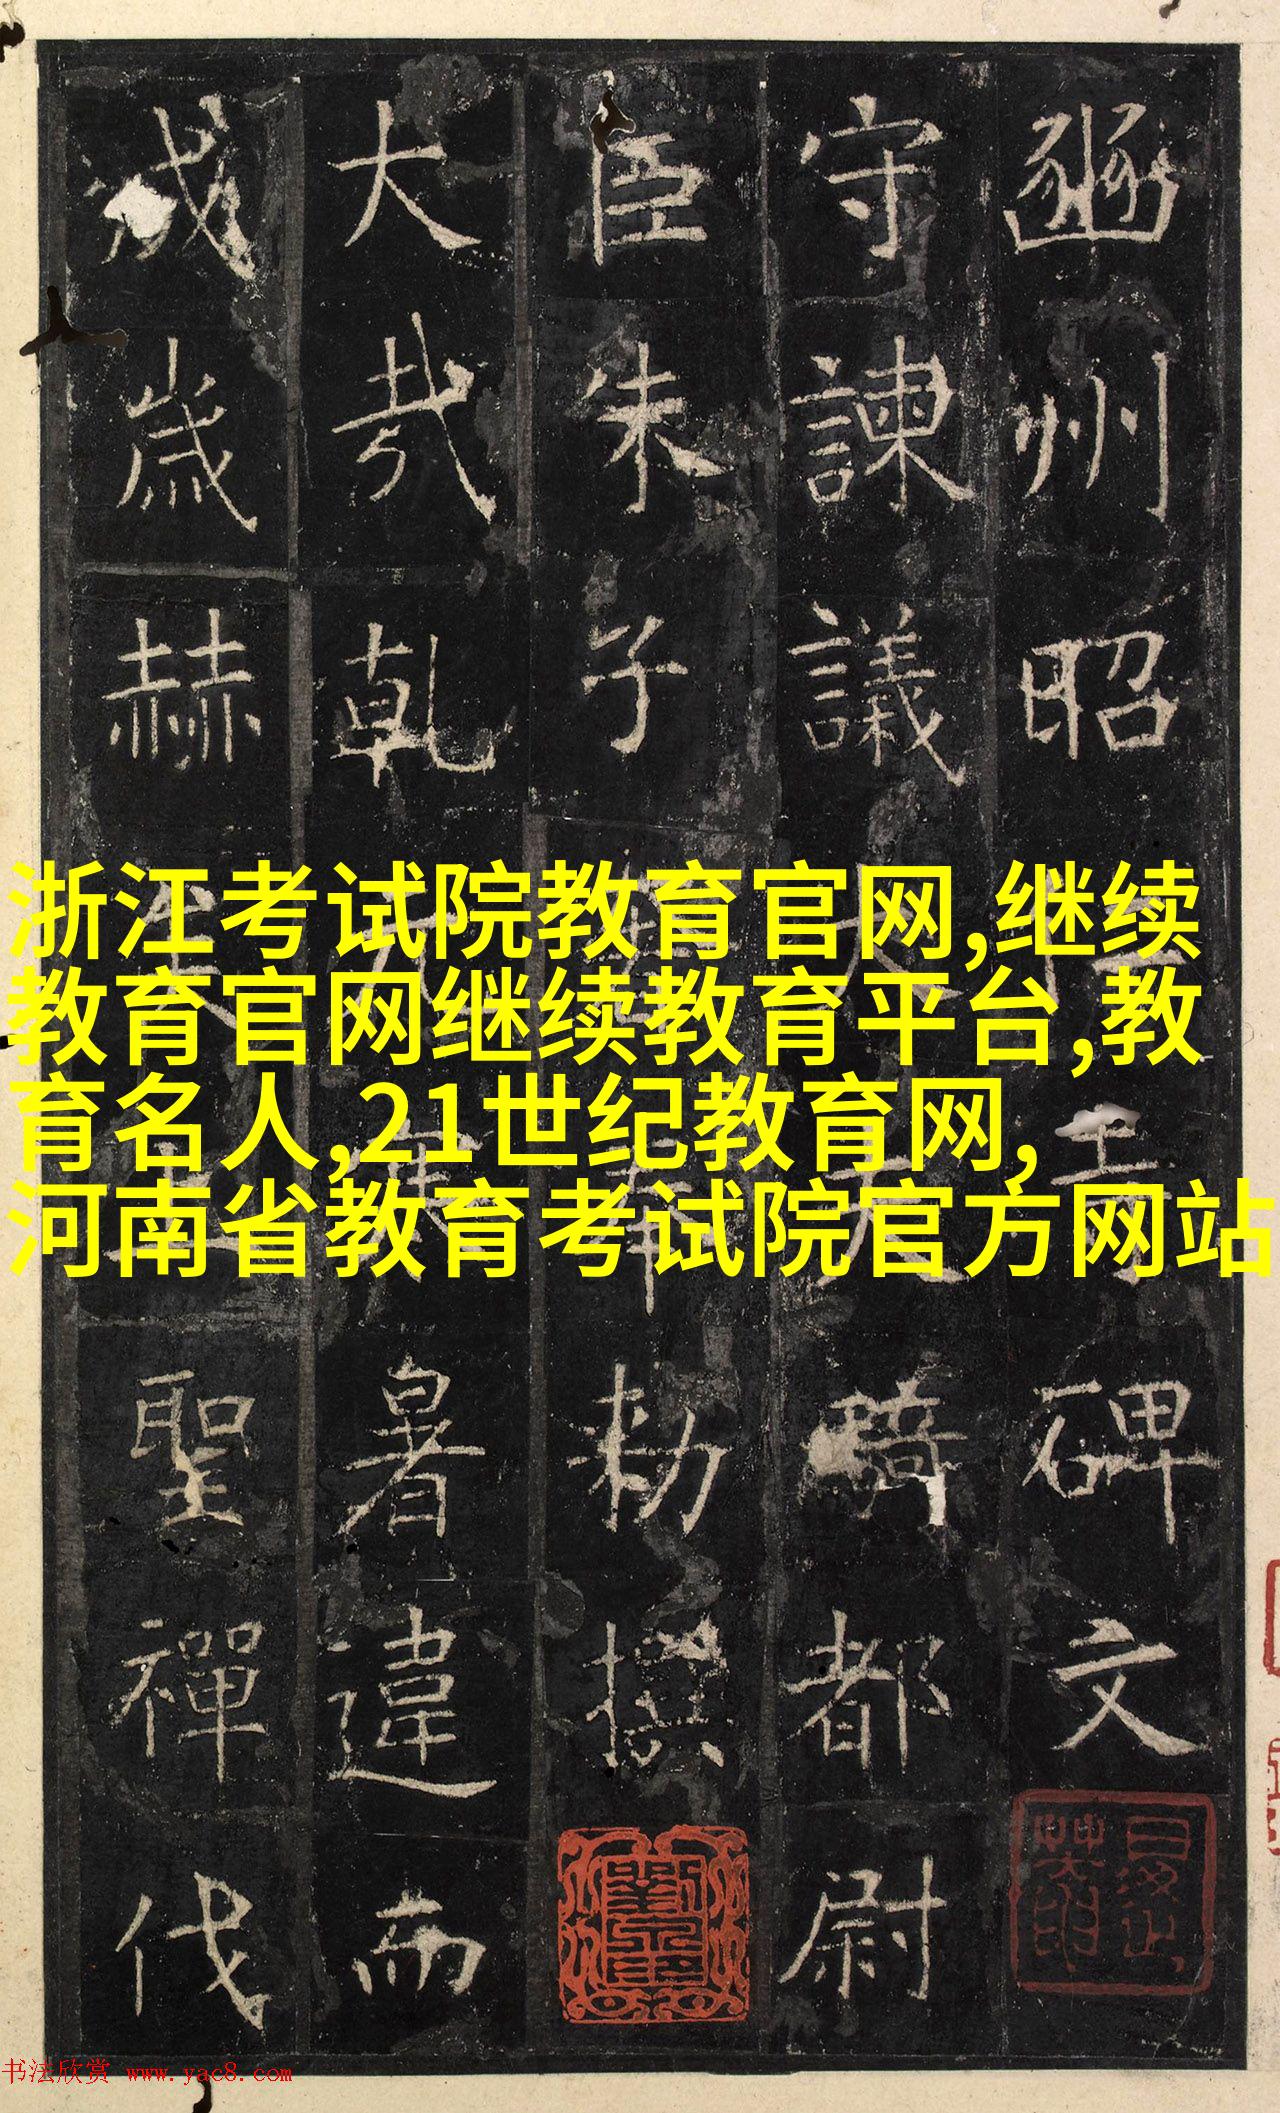 豳州昭碑文
守諫議大夫騎都尉
臣朱子奉勅撰
大哉乾暑違而
成歲赫聖禪代
浙江考试院教育官网,继续
教育官网继续教育平台,教
育名人,21世纪教育网,
河南省教育考试院官方网站
书法欣赏 www.yac8.com